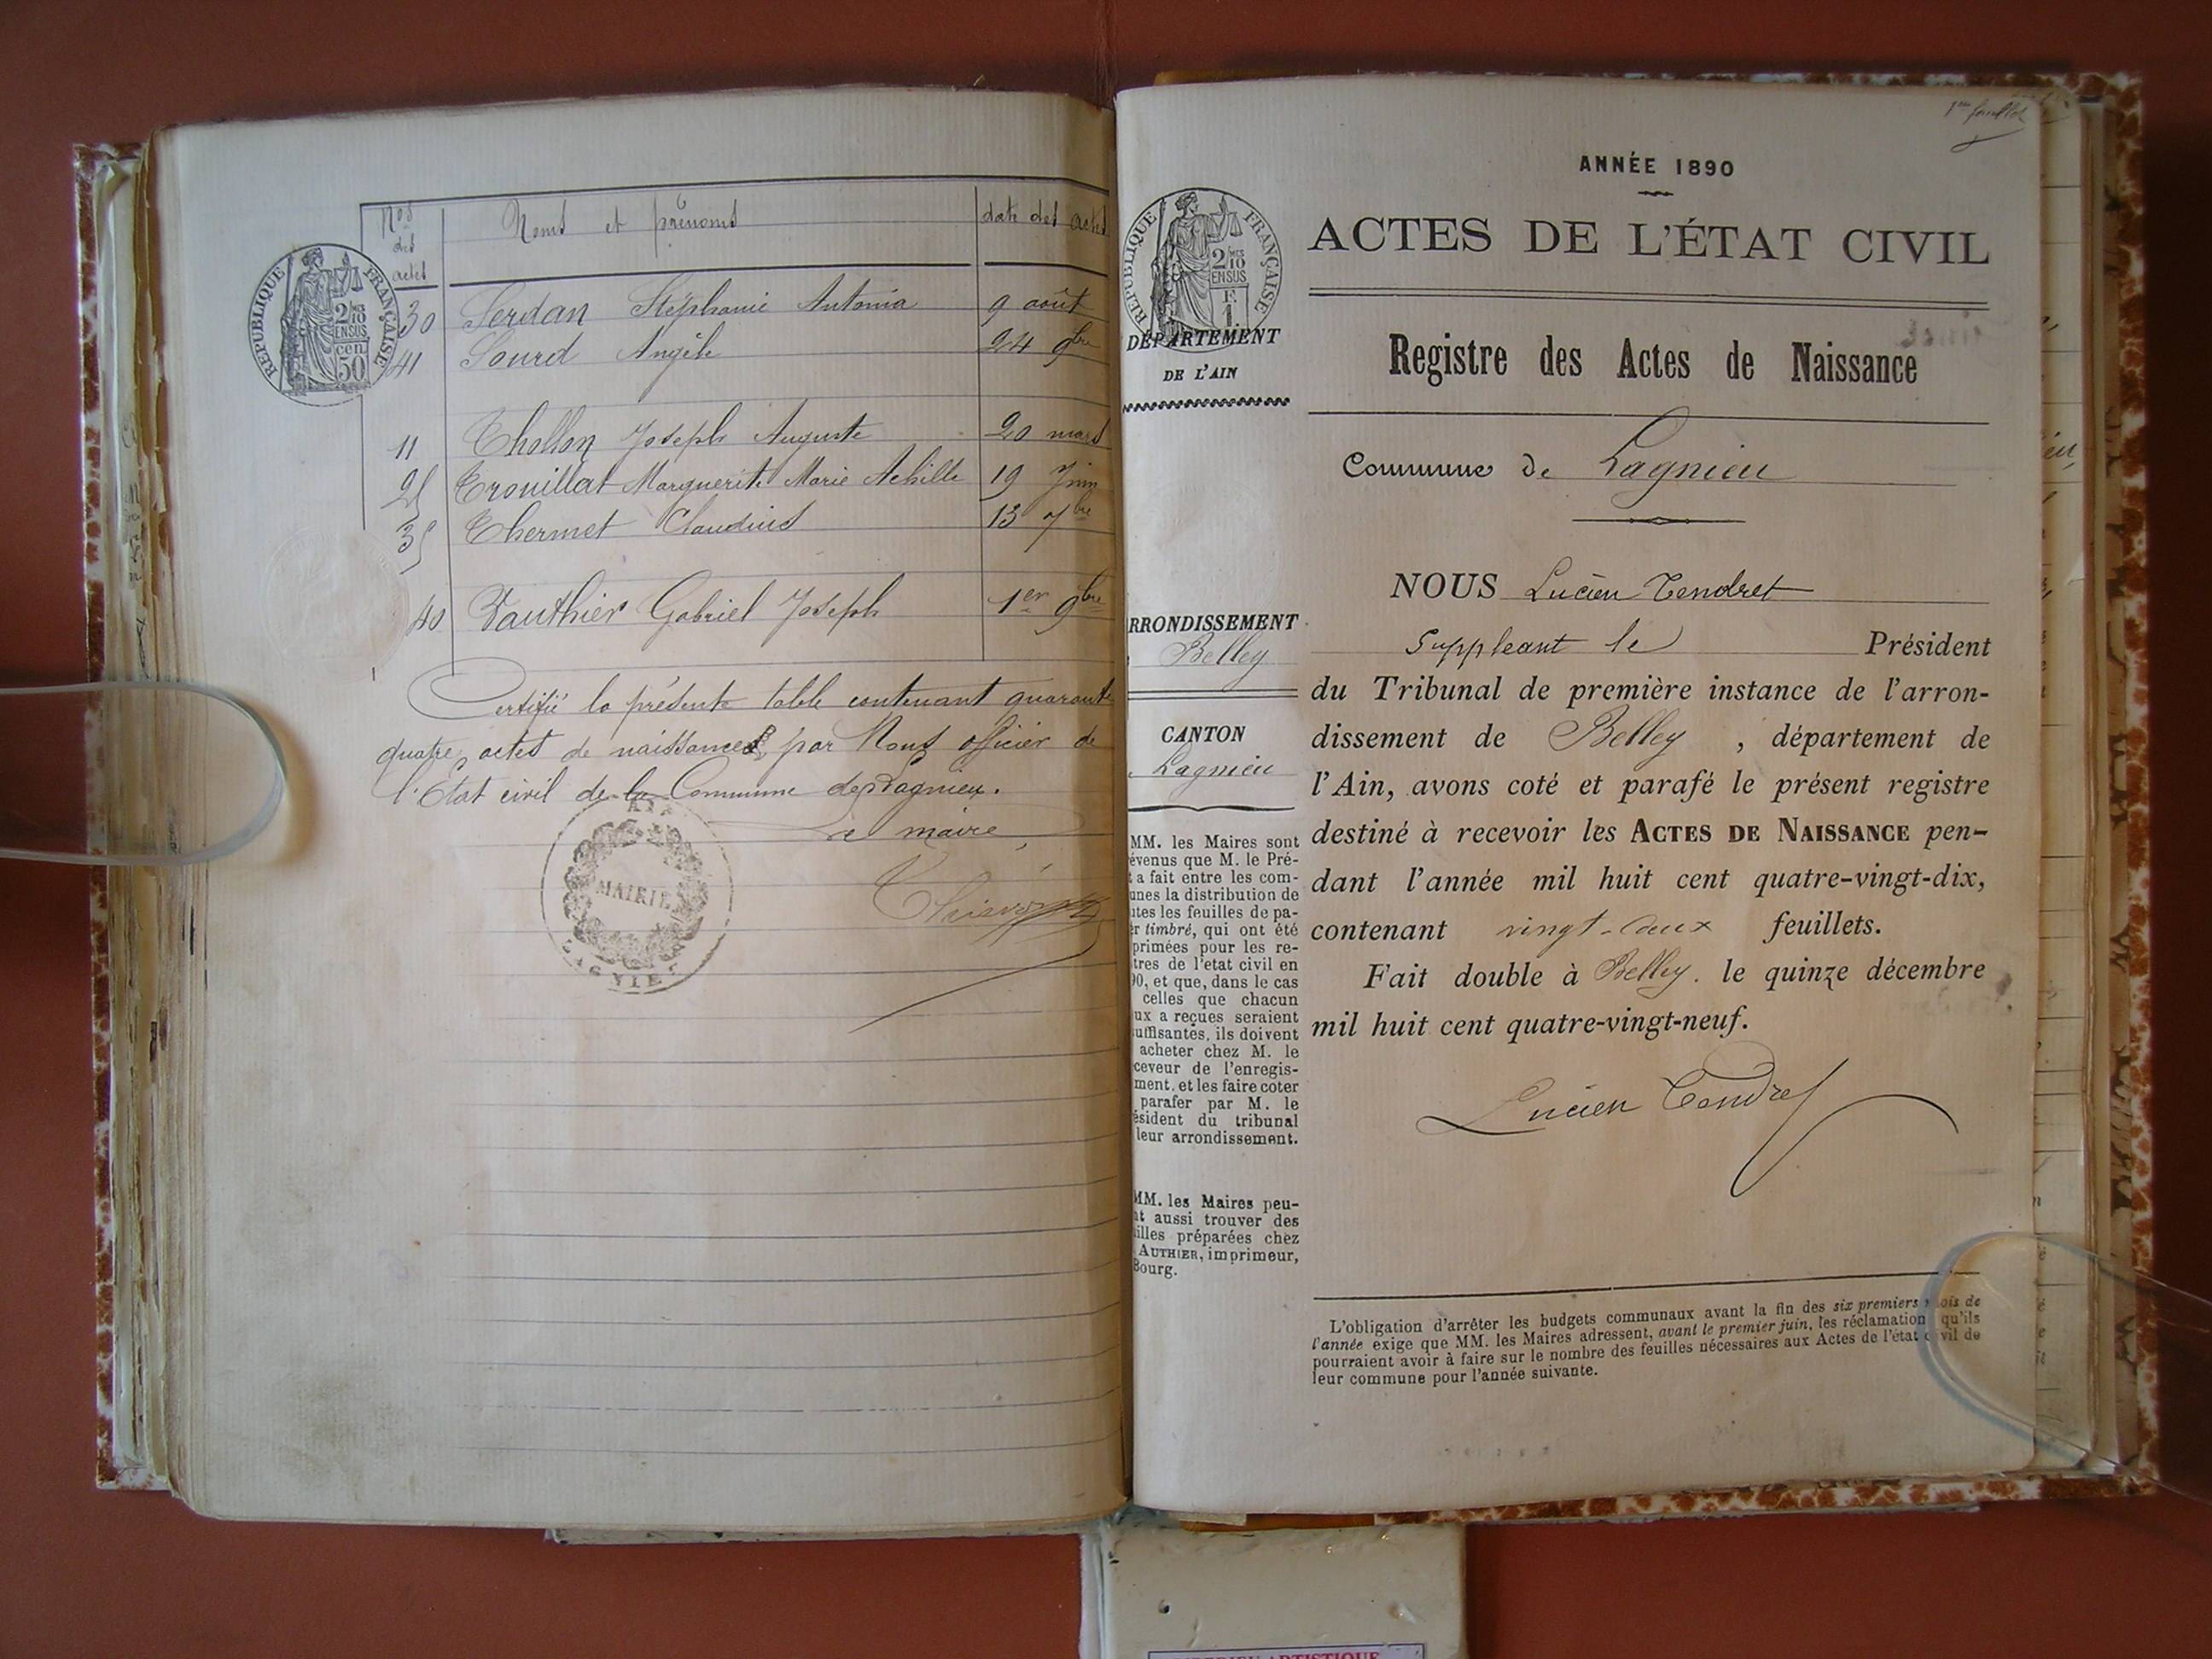 Nos des actes
Noms et prénoms
date des actes
RÉPUBLIQUE FRANÇAISE
2/10 EN SUS
cen 50
30 Serdan Stéphanie Antonia 9 août
41 Sourd Angèle 24 9bre
11 Thollon Joseph Auguste 20 mars
25 Trouillat Marguerite Marie Achille 19 Juin
35 Thermet Claudius 13 7bre
40 Vauthier Gabriel Joseph 1er 9bre
Certifié la présente table contenant quarante
quatre actes de naissances par Nous officier de
l'État civil de la Commune de Lagnieu.
Le maire,
MAIRIE
1er feuillet
ANNÉE 1890
ACTES DE L'ÉTAT CIVIL
RÉPUBLIQUE FRANÇAISE
2/10 EN SUS
F. 1.
DÉPARTEMENT
DE L'AIN
Registre des Actes de Naissance
Commune de Lagnieu
RRONDISSEMENT
Belley
CANTON
Lagnieu
NOUS Lucien Tendret
Suppleant le Président
du Tribunal de première instance de l'arron-
dissement de Belley, département de
l'Ain, avons coté et parafé le présent registre
destiné à recevoir les ACTES DE NAISSANCE pen-
dant l'année mil huit cent quatre-vingt-dix,
contenant vingt-deux feuillets.
Fait double à Belley. le quinze décembre
mil huit cent quatre-vingt-neuf.
Lucien Tendret
MM. les Maires sont
évenus que M. le Pré-
t a fait entre les com-
unes la distribution de
utes les feuilles de pa-
er timbré, qui ont été
primées pour les re-
tres de l'etat civil en
90, et que, dans le cas
celles que chacun
ux a reçues seraient
uffisantes, ils doivent
acheter chez M. le
ceveur de l'enregis-
ment, et les faire coter
parafer par M. le
ésident du tribunal
leur arrondissement.
MM. les Maires peu-
nt aussi trouver des
illes préparées chez
AUTHIER, imprimeur,
Bourg.
L'obligation d'arrêter les budgets communaux avant la fin des six premiers mois de
l'année exige que MM. les Maires adressent, avant le premier juin, les réclamation qu'ils
pourraient avoir à faire sur le nombre des feuilles nécessaires aux Actes de l'état civil de
leur commune pour l'année suivante.